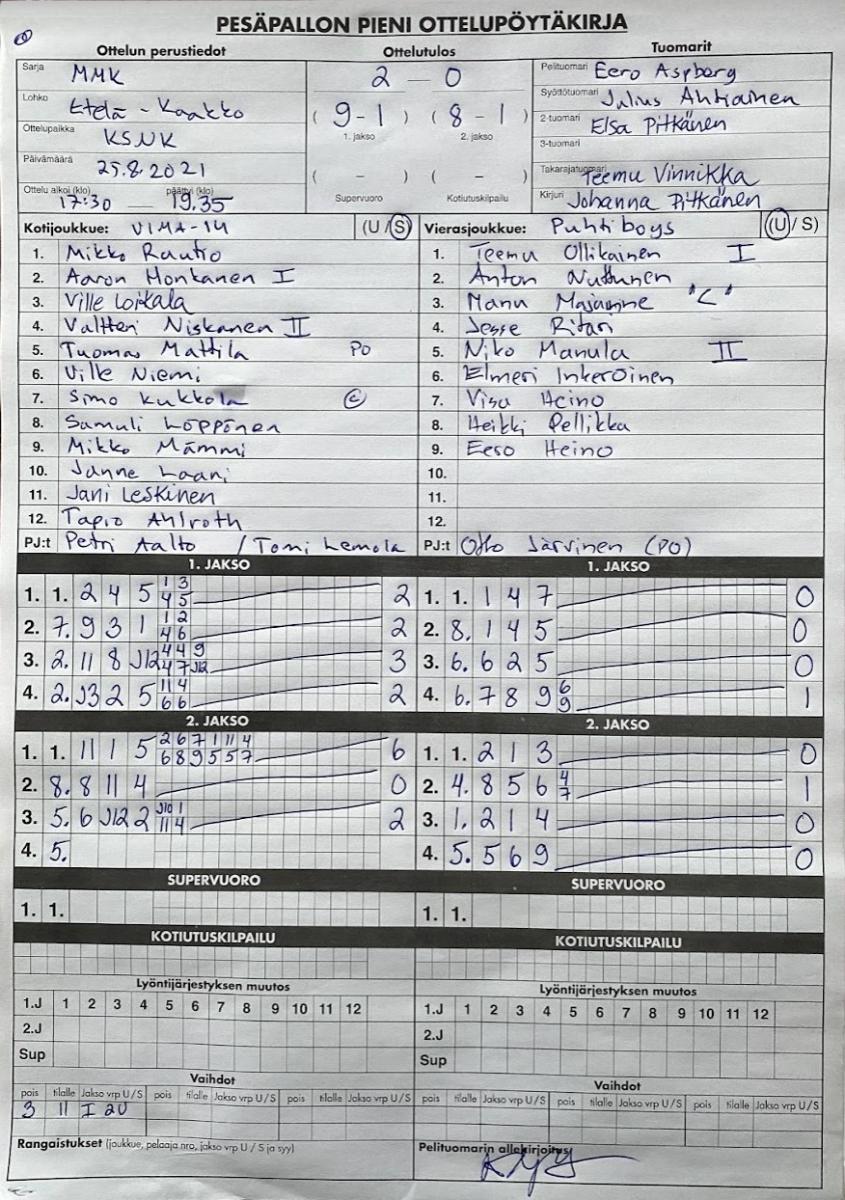 PESÄPALLON PIENI OTTELUPÖYTÄKIRJA
Ottelun perustiedot
Sarja MMK
Lohko Etelä - Kaakko
Ottelupaikka KSNK
Päivämäärä 25.8.2021
Ottelu alkoi (klo) 17:30 — päättyi (klo) 19.35
Ottelutulos
2 — 0
( 9-1 ) ( 8-1 )
1. jakso 2. jakso
( - ) ( - )
Supervuoro Kotiutuskilpailu
Tuomarit
Pelituomari Eero Aspberg
Syöttötuomari Julius Ahtiainen
2-tuomari Elsa Pitkänen
3-tuomari
Takarajatuomari Teemu Vinnikka
Kirjuri Johanna Pitkänen
Kotijoukkue: VIMA-14 (U / S)
1. Mikko Rautio
2. Aaron Honkanen I
3. Ville Loikala
4. Valtteri Niskanen II
5. Tuomas Mattila PO
6. Ville Niemi
7. Simo Kukkola C
8. Samuli Löppönen
9. Mikko Mämmi
10. Janne Laani
11. Jani Leskinen
12. Tapio Ahlroth
PJ:t Petri Aalto / Tomi Lemola
Vierasjoukkue: Puhtiboys (U / S)
1. Teemu Ollikainen I
2. Anton Nuttunen
3. Manu "C"
4. Jesse Ritari
5. Niko Manula II
6. Elmeri Inkeroinen
7. Visa Heino
8. Heikki Pellikka
9. Eero Heino
10.
11.
12.
PJ:t Otto Järvinen (PO)
1. JAKSO
1. 1. 2 4 5 1 3 2
4 5
2. 7. 9 3 1 1 2 2
4 6
3. 2. 11 8 J12 4 4 9 3
4 7 J12
4. 2. J3 2 5 11 4 2
6 6
1. JAKSO
1. 1. 1 4 7 0
2. 8. 1 4 5 0
3. 6. 6 2 5 0
4. 6. 7 8 9 6 1
9
2. JAKSO
1. 1. 11 1 5 2 6 7 1 11 4 6
6 8 9 5 5 7
2. 8. 8 11 4 0
3. 5. 6 J12 2 J10 1 2
11 4
4. 5.
2. JAKSO
1. 1. 2 1 3 0
2. 4. 8 5 6 4 1
7
3. 1. 2 1 4 0
4. 5. 5 6 9 0
SUPERVUORO
1. 1.
SUPERVUORO
1. 1.
KOTIUTUSKILPAILU
KOTIUTUSKILPAILU
Lyöntijärjestyksen muutos
1.J 1 2 3 4 5 6 7 8 9 10 11 12
2.J
Sup
Lyöntijärjestyksen muutos
1.J 1 2 3 4 5 6 7 8 9 10 11 12
2.J
Sup
Vaihdot
pois tilalle Jakso vrp U / S pois tilalle Jakso vrp U / S pois tilalle Jakso vrp U / S
3 11 I 2U
Vaihdot
pois tilalle Jakso vrp U / S pois tilalle Jakso vrp U / S pois tilalle Jakso vrp U / S
Rangaistukset (joukkue, pelaaja nro, jakso vrp U / S ja syy)
Pelituomarin allekirjoitus